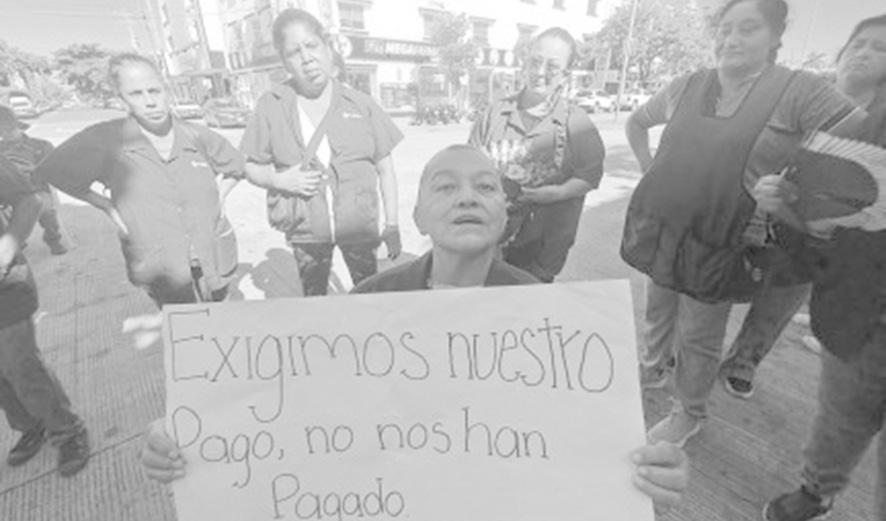 Exigimos nuestro
Pago, no nos han
Pagado.